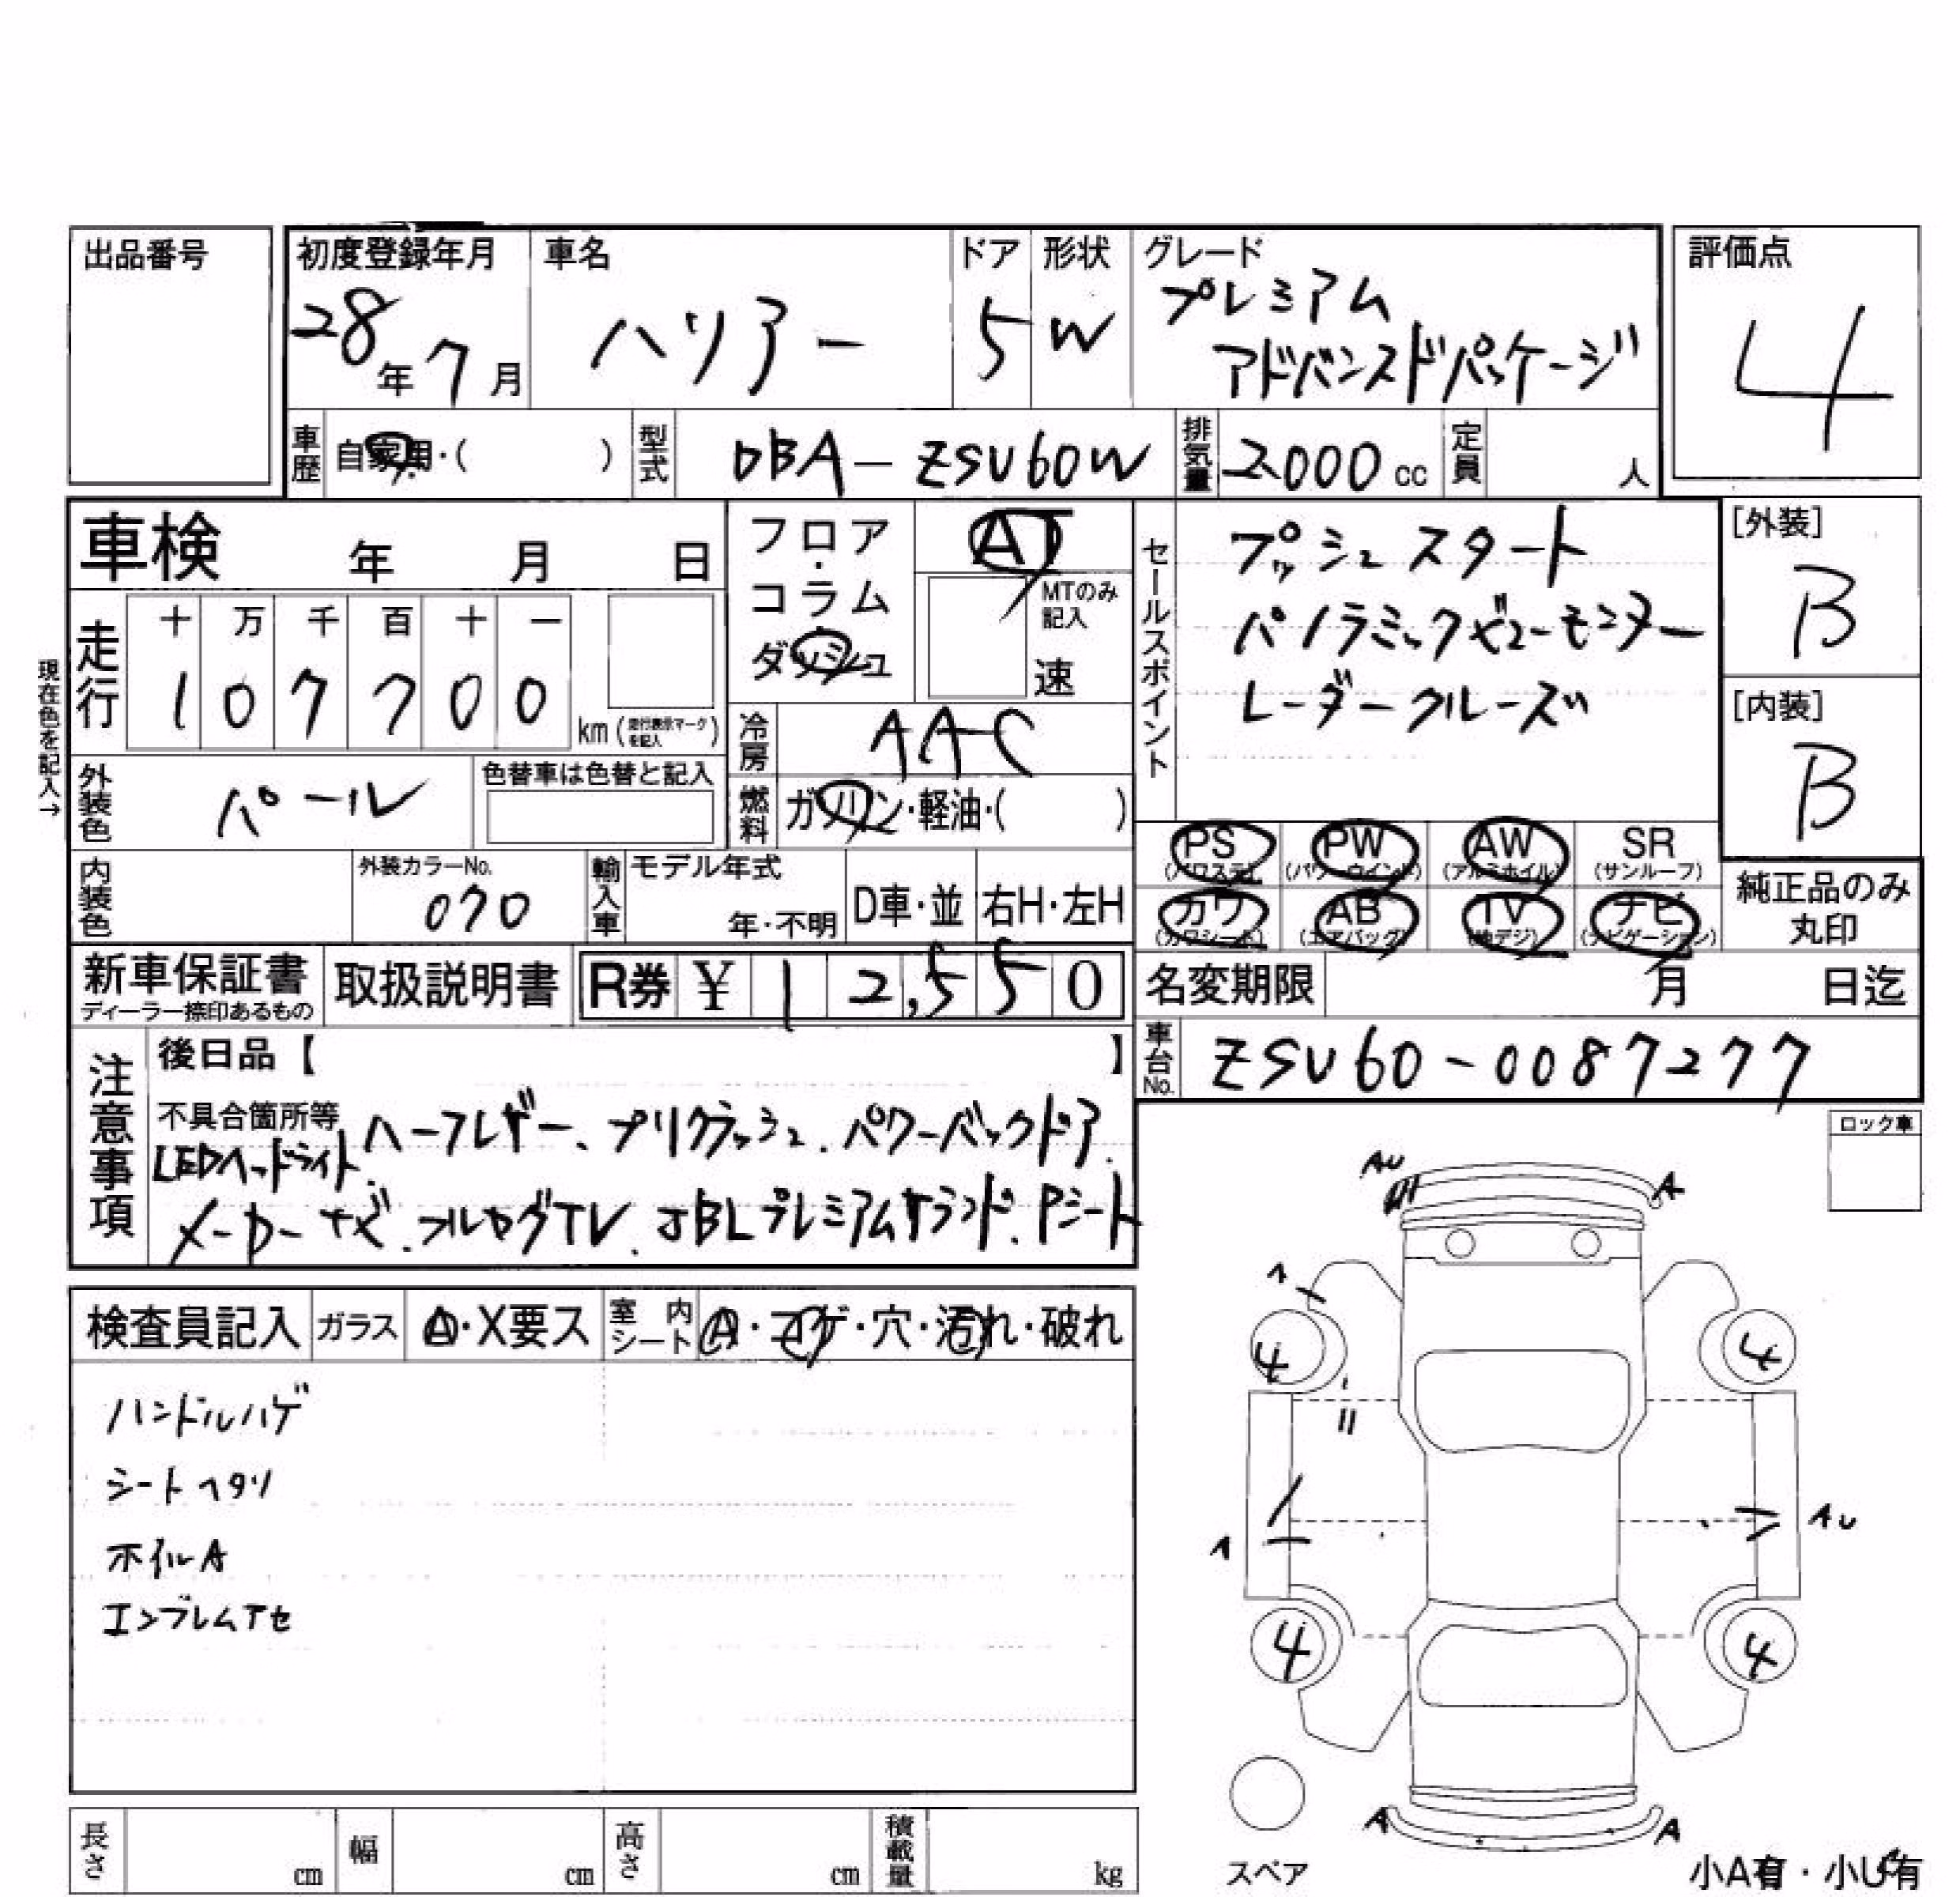 出品番号
初度登録年月 28年 7月
車名 ハリアー
ドア 5
形状 W
グレード プレミアム
アドバンスドパッケージ
評価点 4
車歴 自家用・( )
型式 DBA-ZSU60W
排気量 2000cc
定員 人
車検 年 月 日
フロア・コラム ダッシュ
AT
MTのみ記入
速
セールスポイント
プッシュスタート
パノラミックビューモニター
レーダークルーズ
[外装] B
[内装] B
現在色を記入→
走行 十 万 千 百 十 一
1 0 7 7 0 0
km (走行表示マークを記入)
冷房 AAC
燃料 ガソリン・軽油・( )
外装色 パール
色替車は色替と記入
PS (パワステ) PW (パワーウインド) AW (アルミホイル) SR (サンルーフ)
カワ (カワシート) AB (エアバッグ) TV (地デジ) ナビ (ナビゲーション)
純正品のみ丸印
内装色
外装カラーNo. 070
輸入車 モデル年式 年・不明
D車・並 右H・左H
新車保証書
ディーラー捺印あるもの
取扱説明書
R券 ¥ 1 2,5 5 0
名変期限 月 日迄
車台No. ZSU60-0087277
注意事項
後日品【 】
不具合箇所等 ハーフレザー、プリクラッシュ.パワーバックドア.
LEDヘッドライト.
メーカーナビ.フルセグTV.JBLプレミアムサウンド.Pシート
ロック車
検査員記入 ガラス A・X要ス 室内シート A・コゲ・穴・汚れ・破れ
ハンドルハゲ
シートヘタリ
ホイルA
エンブレムアセ
AU
A
A
4
4
A
AU
4
4
A
A
スペア
小A有・小U有
長さ cm
幅 cm
高さ cm
積載量 kg